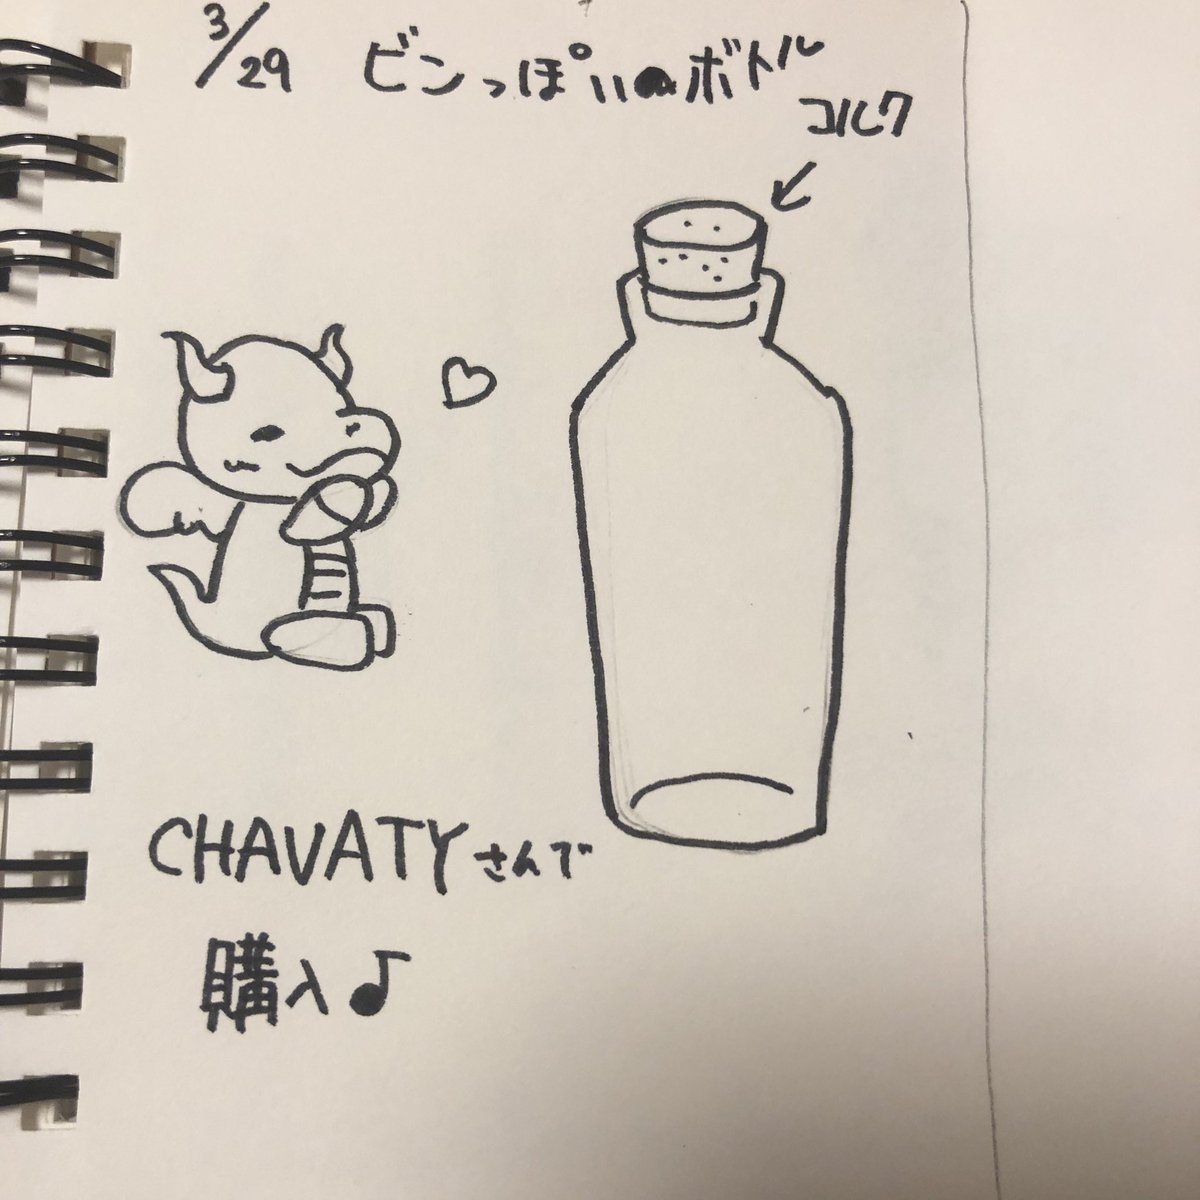 3/29 ビンっぽいボトル
コルク
CHAVATYさんで
購入♪